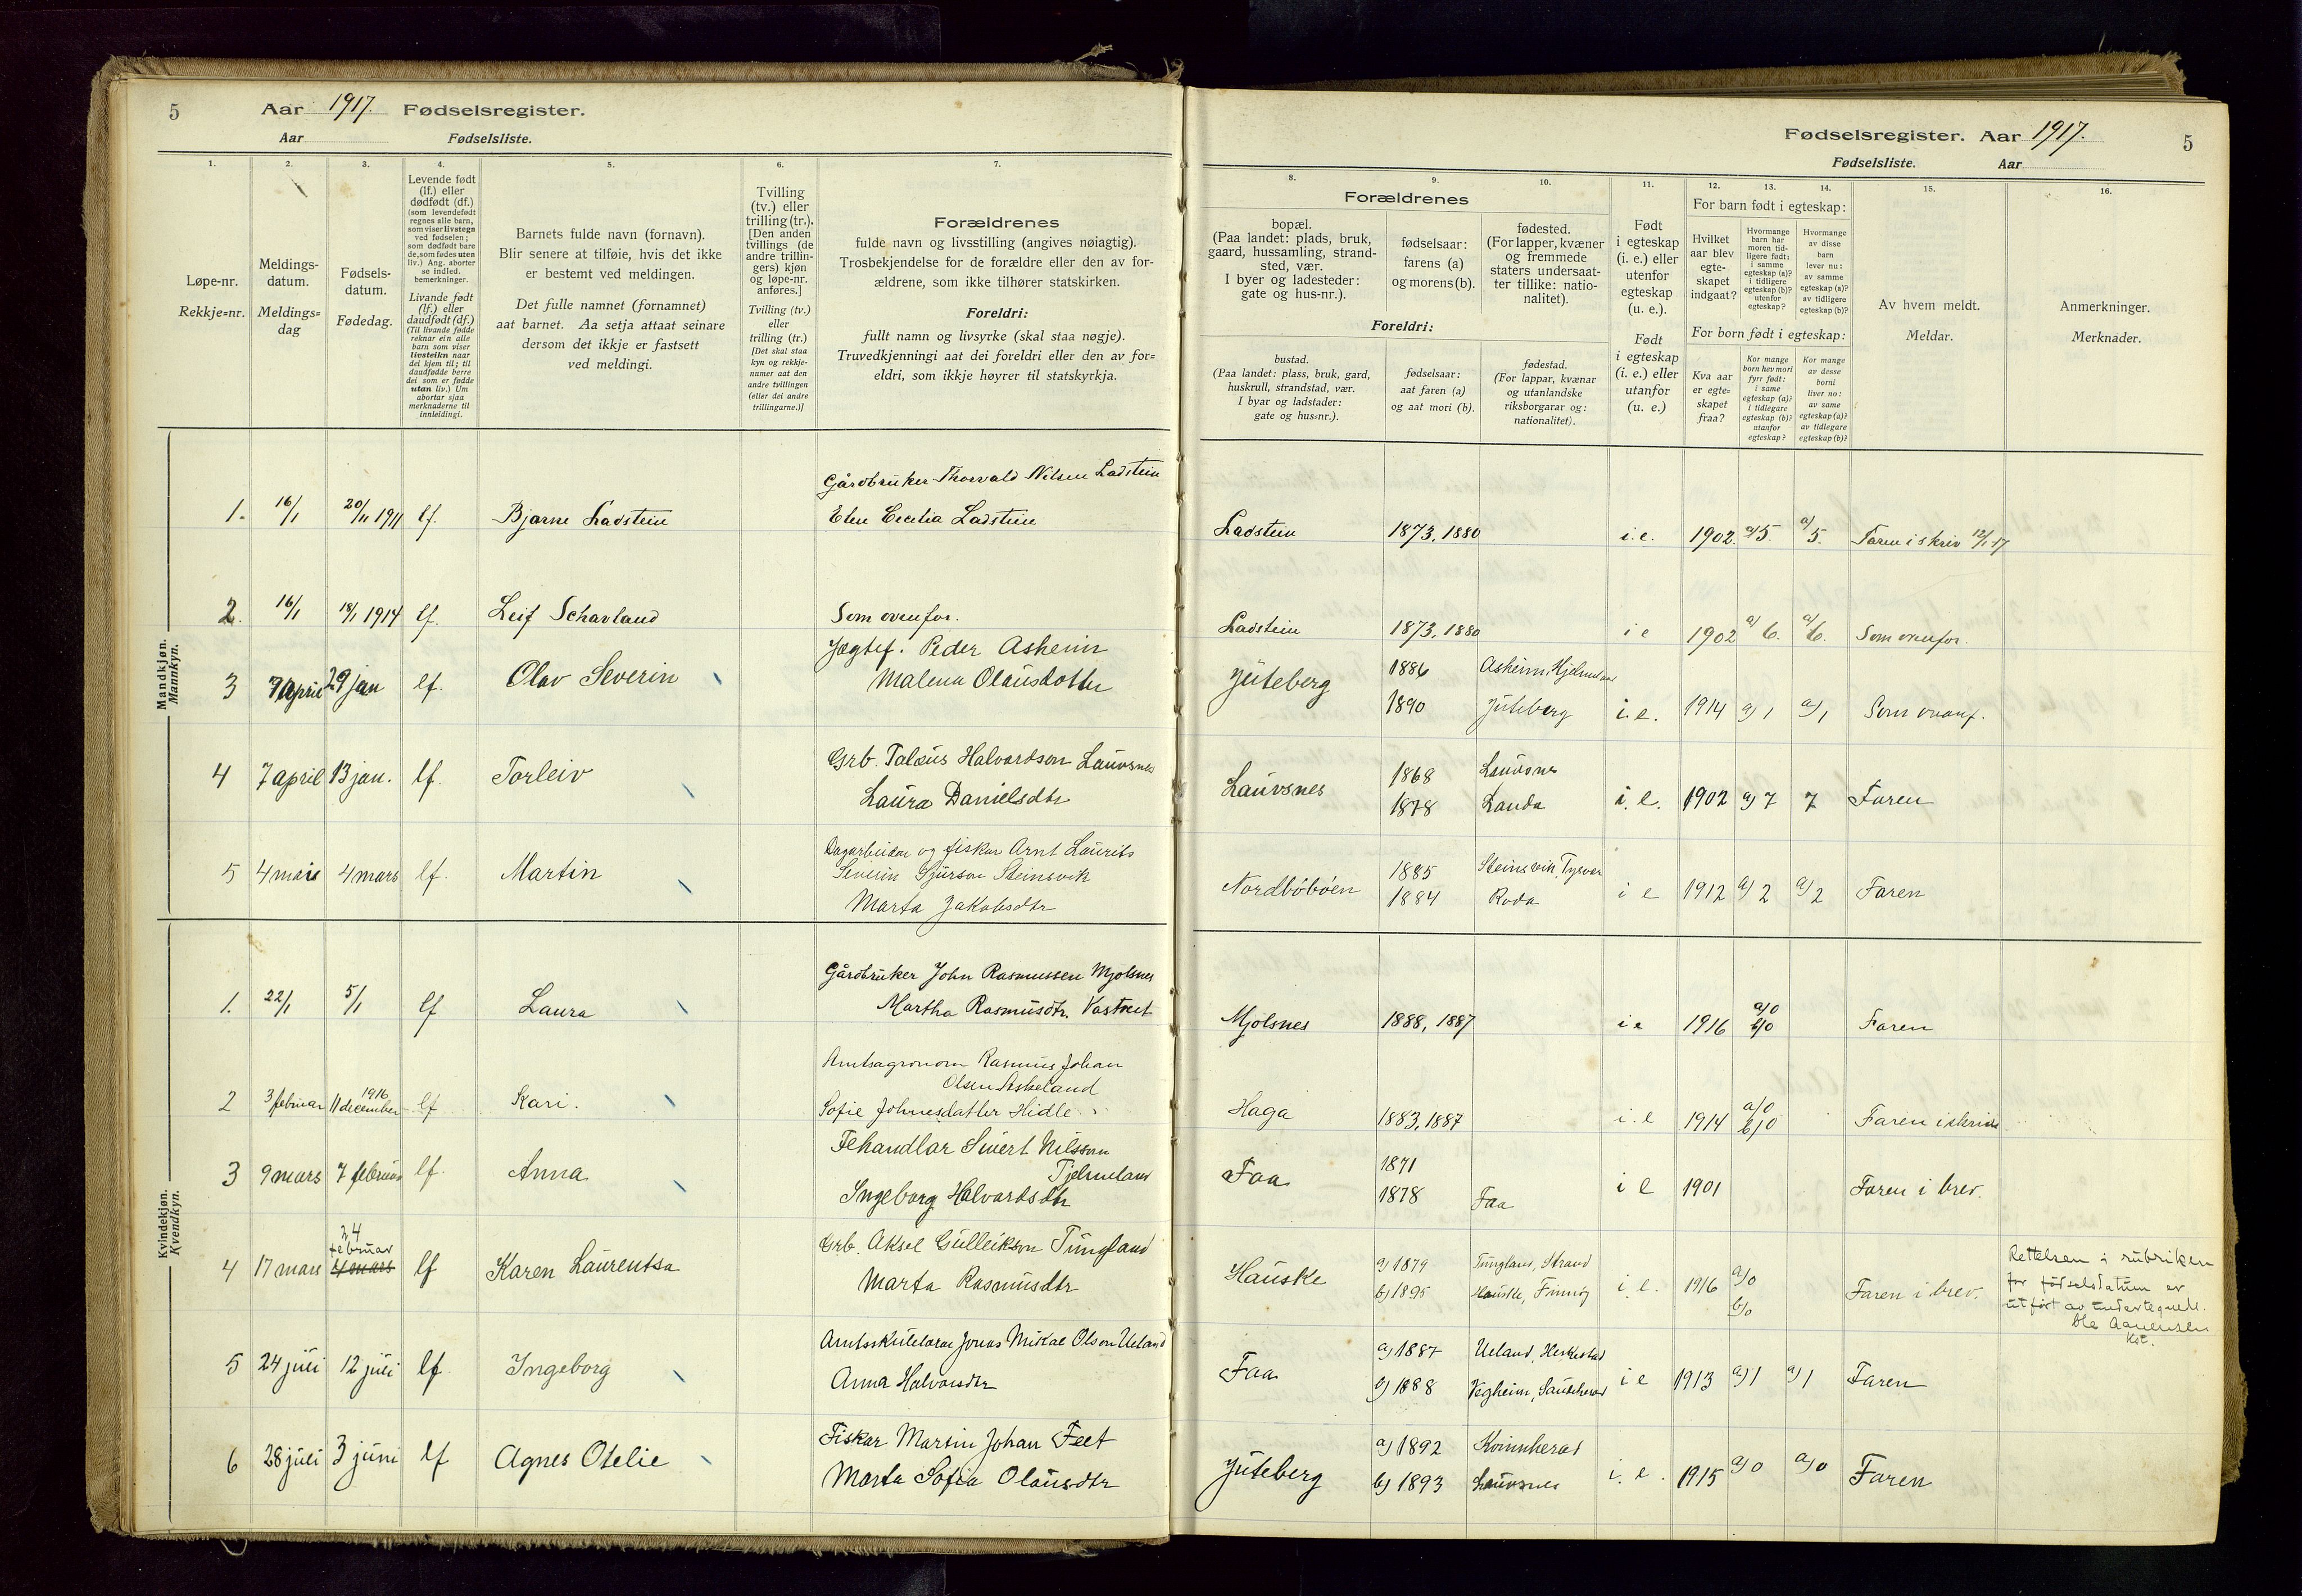 5 Aar 1917. Fødselsregister.
Aar Fødselsliste.
Fødselsregister. Aar 1917. 5
Fødselsliste. Aar
1. 2. 3. 4. 5. 6. 7.
Løpe-nr.
Rekkje=nr.
Meldings-
datum.
Meldings=
dag
Fødsels-
datum.
Fødedag.
Levende født
(lf.) eller
dødfødt (df.)
(som levendefødt
regnes alle barn,
som viser livstegn
ved fødselen;
som dødfødt bare
de, som fødes uten
liv.) Ang. aborter
se indled.
bemerkninger.
Livande født
(lf.) eller
daudfødt (df.)
(Til livande fødde
reknar ein alle
barn som viser
livsteikn naar
dei kjem til; til
daudfødde berre
dei som er fødde
utan liv.) Um
abortar sjaa
merknaderne til
innleidingi.
Barnets fulde navn (fornavn).
Blir senere at tilføie, hvis det ikke
er bestemt ved meldingen.
Det fulle namnet (fornamnet)
aat barnet. Aa setja attaat seinare
dersom det ikkje er fastsett
ved meldingi.
Tvilling
(tv.) eller
trilling (tr.).
[Den anden
tvillings (de
andre trillin-
gers) kjøn
og løpe-nr.
anføres.]
Tvilling (tv.)
eller
trilling (tr.)
[Det skal staa
kyn og rekkje-
numer aat den
andre tvillingen
(eller dei andre
trillingarne.)]
Forældrenes
fulde navn og livsstilling (angives nøiagtig).
Trosbekjendelse for de forældre eller den av for-
ældrene, som ikke tilhører statskirken.
Foreldri:
fullt namn og livsyrke (skal staa nøgje).
Truvedkjenningi aat dei foreldri eller den av for=
eldri, som ikkje høyrer til statskyrkja.
8. 9. 10. 11. 12. 13. 14. 15. 16.
Forældrenes
bopæl.
(Paa landet: plads, bruk,
gaard, hussamling, strand-
sted, vær.
I byer og ladesteder:
gate og hus-nr.).
fødselsaar:
farens (a)
og morens (b).
fødested.
(For lapper, kvæner
og fremmede
staters undersaat-
ter tillike: natio-
nalitet).
Foreldri:
bustad.
(Paa landet: plass, bruk, gard,
huskrull, strandstad, vær.
I byar og ladstader:
gate og hus=nr.).
fødselsaar:
aat faren (a)
og aat mori (b).
fødestad.
(For lappar, kvænar
og utanlandske
riksborgarar og:
nationalitet).
Født
i egteskap
(i. e.) eller
utenfor
egteskap
(u. e.).
Født
i egteskap
(i. e.) eller
utanfor
(u. e.)
For barn født i egteskap:
Hvilket
aar blev
egte-
skapet
indgaat?
Hvormange
barn har
moren tid-
ligere født:
i samme
egteskap (a)?
i tidligere
egteskap (b)?
utenfor
egteskap?
Hvormange
av disse
barn
lever nu:
av samme
egteskap (a)?
av tidligere
egteskap (b)?
For born født i egteskap:
Kva aar
er egte-
skapet
fraa?
Kor mange
born hev mori
fyrr født:
i same
egteskap (a)?
i tidlegare
egteskap (b)?
utanfor
egteskap?
Kor mange
av desse
borni
liver no:
av same
egteskap (a)?
av tidlegare
egteskap (b)?
Av hvem meldt.
Meldar.
Anmerkninger.
Merknader.
Mandkjøn.
Mannkyn.
Gårdbruker Thorvald Nilsen Ladstein
1. 16/1 20/11 1911 lf. Bjarne Ladstein Elen Cecilia Ladstein
Ladstein 1873, 1880 i.e. 1902. a/5. a/5. Faren i skriv 12/1-17
2. 16/1 18/1 1914 lf. Leif Schavland Som ovenfor.
Ladstein 1873, 1880 i e 1902 a/6. a/6. Som ovenfor.
Jægtef. Peder Asheim
3 7 april 29 jan lf. Olav Severin Malena Olausdotter
Juteberg 1886 Asheim, Hjelmeland
1890 Juteberg i. e. 1914 a/1 a/1 Som ovanf.
Grb. Taleus Halvardson Lauvsnes
4 7 april 13 jan. lf. Torleiv Laura Danielsdtr
Lauvsnes 1868 Lauvsnes
1878 Landa i. e. 1902 a) 7 7 Faren
Dagarbeidar og fiskar Arnt Laurits
5 4 mars 4 mars lf. Martin Severin Sjurson Steinsvik
Marta Jakobsdtr
Nordbøbøen 1885 Steinsvik, Tysvær
1884 Roda i e 1912 a/2 a/2 Faren
Kvindekjøn.
Kvendkyn.
Gårdbruker John Rasmussen Mjølsnes
1. 22/1 5/1 lf Laura Martha Rasmusdtr. Vastveit
Mjølsnes 1888, 1887 i e 1916 a/0 b/0 Faren
Amtsagronom Rasmus Johan
Olsen Askeland
2 3 februar 11 december 1916 lf Kari. Sofie Johnesdatter Hidle
Haga 1883, 1887 i. e 1914 a/0 b/0 Faren i skriv
Fehandlar Sivert Nilsson
Tjelmeland
3 9 mars 7 februar lf. Anna Ingeborg Halvardsdtr
Faa 1871
1878 Faa i e 1901 Faren i brev.
24
februar
Grb. Aksel Gulleikson Tungland
4 17 mars 4 mars lf Karen Laurentsa Marta Rasmusdtr
Hauske a) 1879 Tungland, Strand
b) 1895 Hauske, Finnøy i. e. 1916 a/0 b/0 Faren i brev.
Rettelsen i rubrikken
for fødselsdatum er
utført av undertegnede.
Ole Aanensen
Kst.
Amtsskulelærar Jonas Mikal Olson Ueland
5 24 juli 12 juli lf. Ingeborg Anna Halvorsdtr
Faa a) 1887 Ueland, Heskestad
b) 1888 Vegheim, Sauherad i e 1913 a/1 a/1 Faren
Fiskar Martin Johan Feet
6 28 juli 3 juni lf Agnes Otelie Marta Sofia Olausdtr
Juteberg a) 1892 Kvinnherad
b) 1893 Lauvsnes i. e. 1915 a/0 a/0 Faren